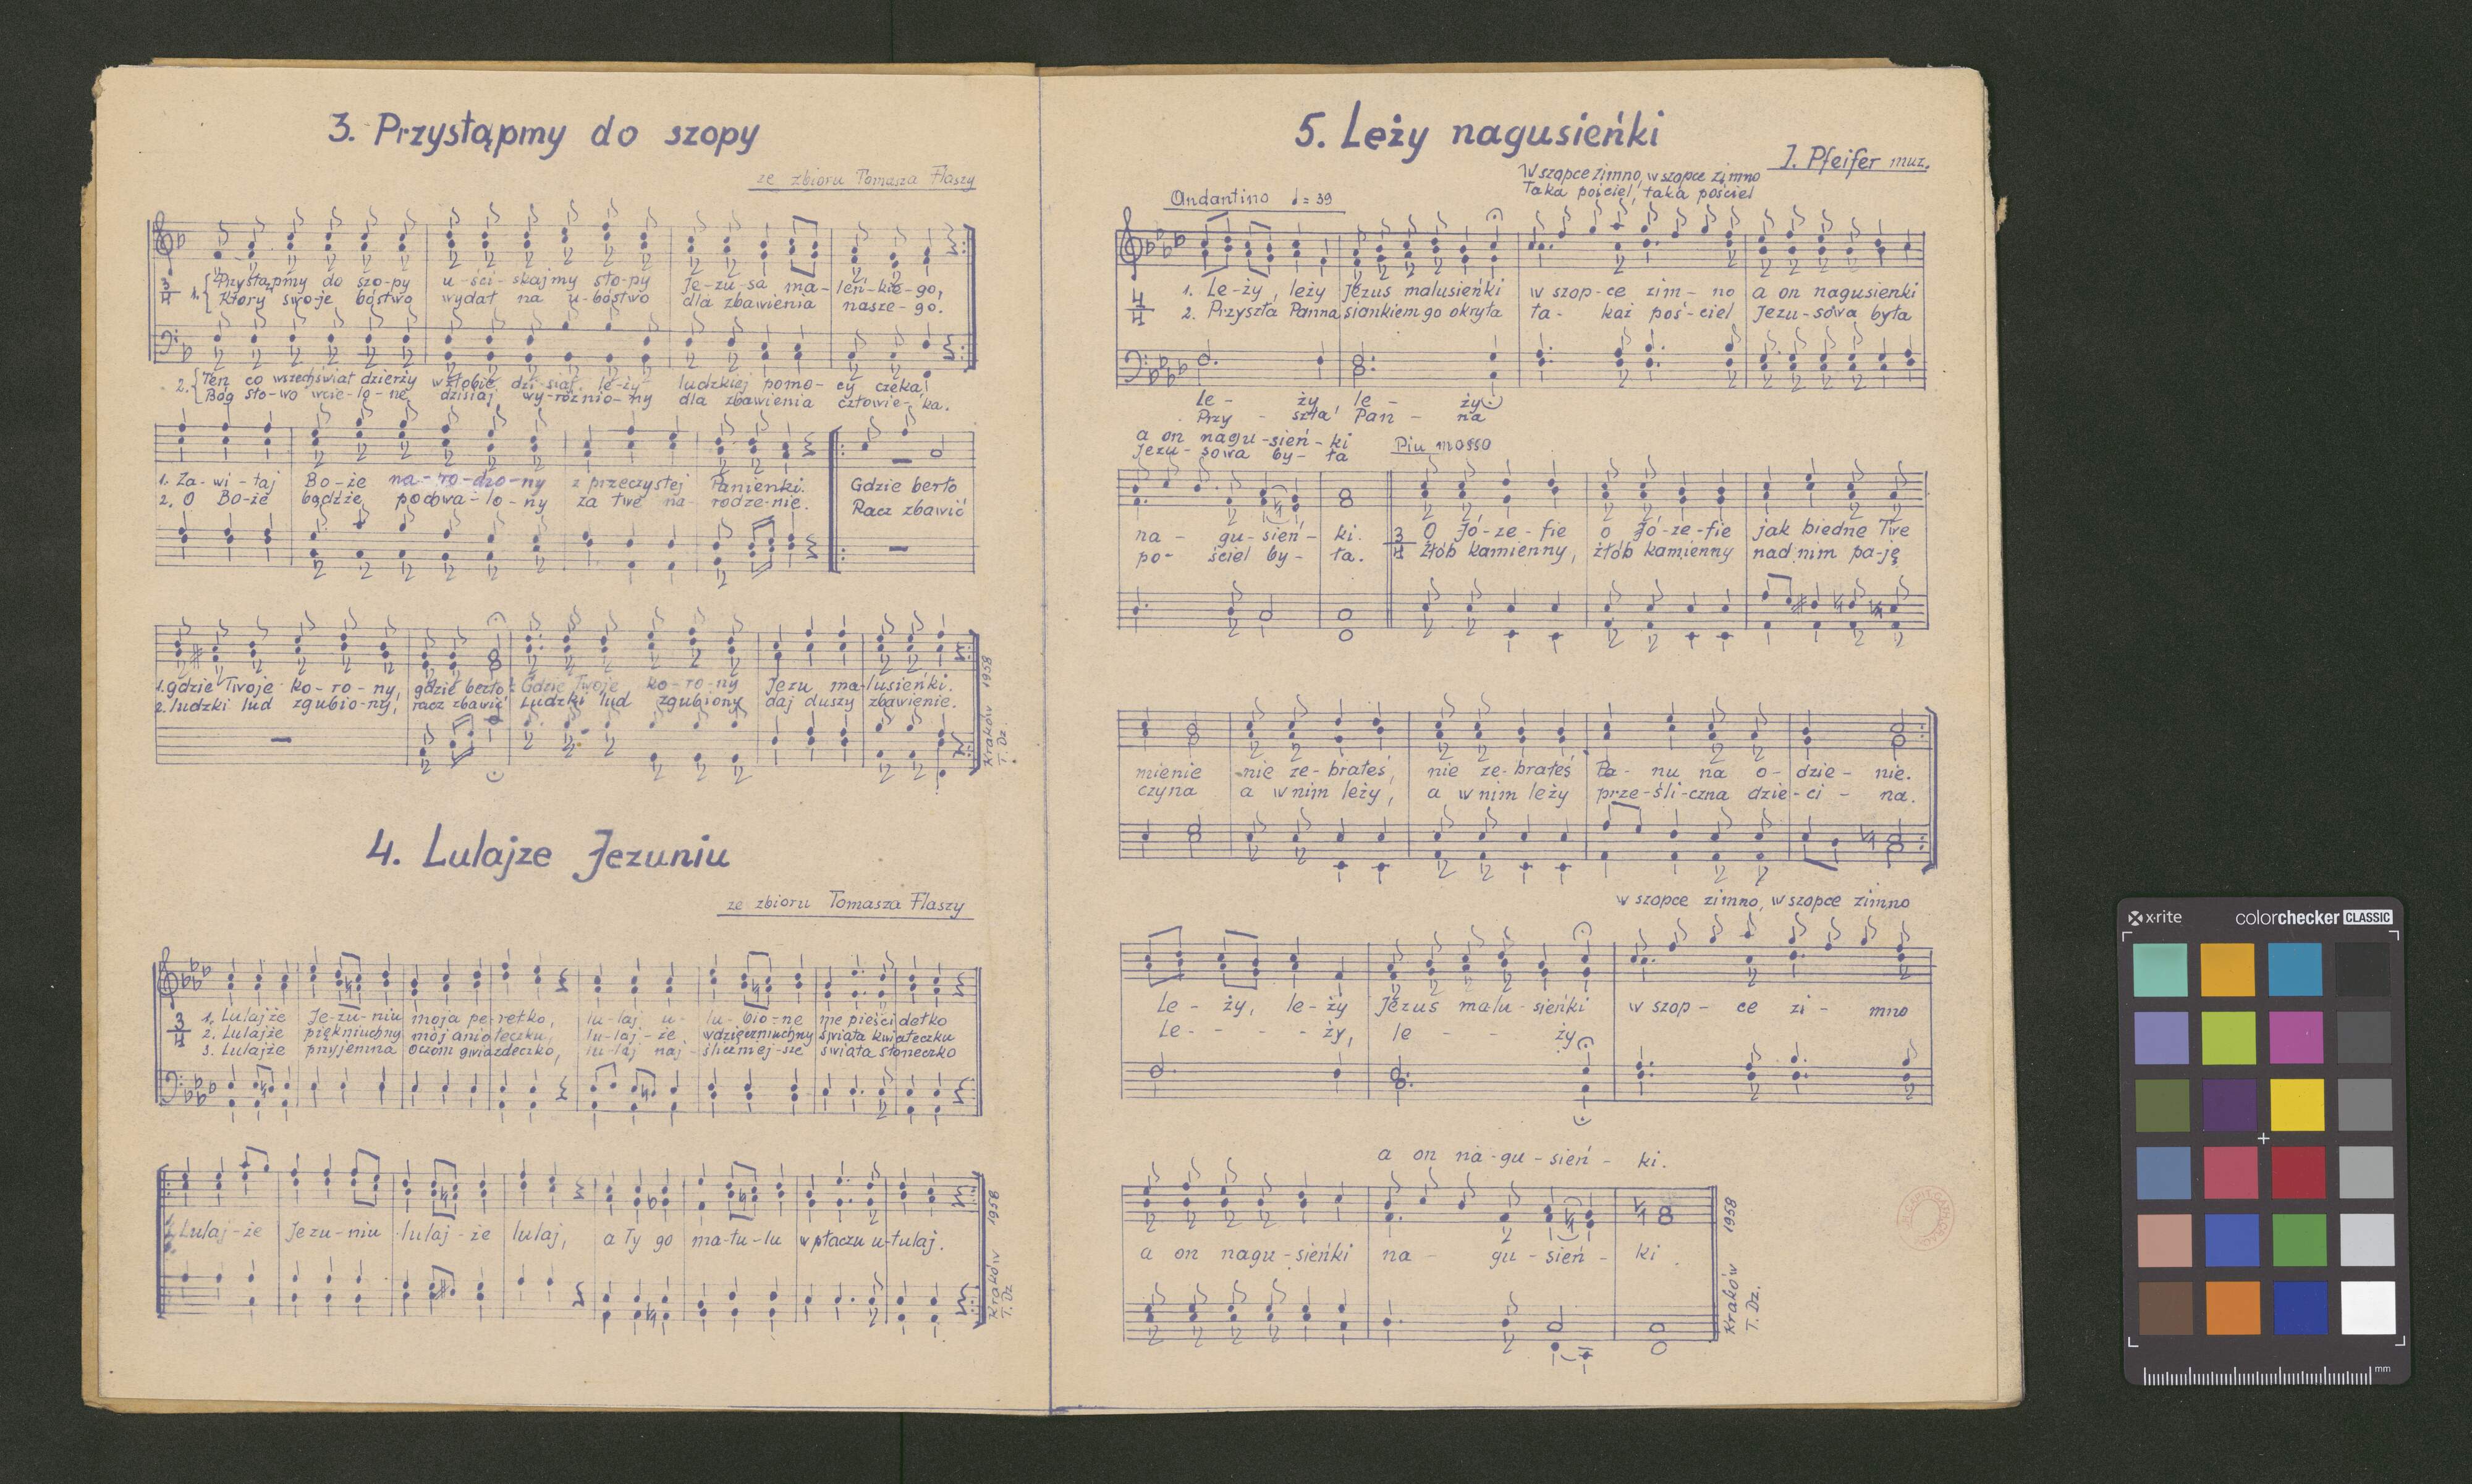 3. Przystąpmy do szopy
ze zbioru Tomasza Flaszy
3/4
1. Przystąpmy do szo-py u-ści-skajmy sto-py Je-zu-sa ma-leń-kie-go,
Który swo-je bóstwo wydał na u-bóstwo dla zbawienia nasze-go.
2. Ten co wszechświat dzierży w żłobie dzi-siaj le-ży ludzkiej pomo-cy czeka,
Bóg sło-wo wcie-lo-ne dzisiaj wy-róż nio-ny dla zbawienia człowie-ka.
1. Za-wi-taj Bo-że na-ro-dzo-ny z przeczystej Panienki. Gdzie berło
2. O Bo-że bądźże pochwa-lo-ny za twe na-rodze-nie. Racz zbawić
1. gdzie Twoje ko-ro-ny, gdzie berło Gdzie Twoje ko-ro-ny Jezu ma-lusieńki.
2. ludzki lud zgubio-ny, racz zbawić Ludzki lud zgubiony daj duszy zbawienie.
Kraków 1958
T. Dz.
4. Lulajze Jezuniu
ze zbioru Tomasza Flaszy
3/4
1. Lulajże Je-zu-niu moja pe-rełko, lu-laj u-lu-bio-ne me pieści dełko
2. Lulajże piękniuchny mój anio łeczku, lu-laj-że wdzięczniuchny świata kwiateczku
3. Lulajże przyjemna oczom gwiazdeczko, lu-laj naj-śliczniej-sze świata słoneczko
Lulaj-że Jezu-niu lulaj-że lulaj, a ty go ma-tu-lu w płaczu u-tulaj.
Kraków 1958
T. Dz
5. Leży nagusieńki
J. Pfeifer muz.
W szopce zimno, w szopce zimno
Taka pościel, taka pościel
Andantino ♩ = 39
4/4
1. Le-ży, leży Jezus malusieńki w szop-ce zim-no a on nagusienki
2. Przyszła Panna siankiem go okryła ta- każ poś-ciel Jezu-sowa była
Le - ży le - ży
Przy - szła Pan - na
a on nagu-sień-ki
Jezu-sowa by-ła
Piu mosso
na - gu-sień-ki. 3/4 O Jó-ze-fie o Jó-ze-fie jak biedne Twe
po- ściel by-ła. Żłób kamienny, żłób kamienny nad nim pa-ję
mienie nie ze-brałeś, nie ze-brałeś Pa-nu na o-dzie-nie.
czyna a w nim leży, a w nim leży prze-śli-czna dzie-ci-na.
w szopce zimno, w szopce zimno
Le-ży, le-ży Jezus malu-sieńki w szop-ce zi-mno
Le- - - -ży, le - - ży
a on na-gu-sień-ki.
a on nagu-sieńki na - gu-sień-ki
Kraków 1958
T. Dz.
x-rite colorchecker CLASSIC
mm